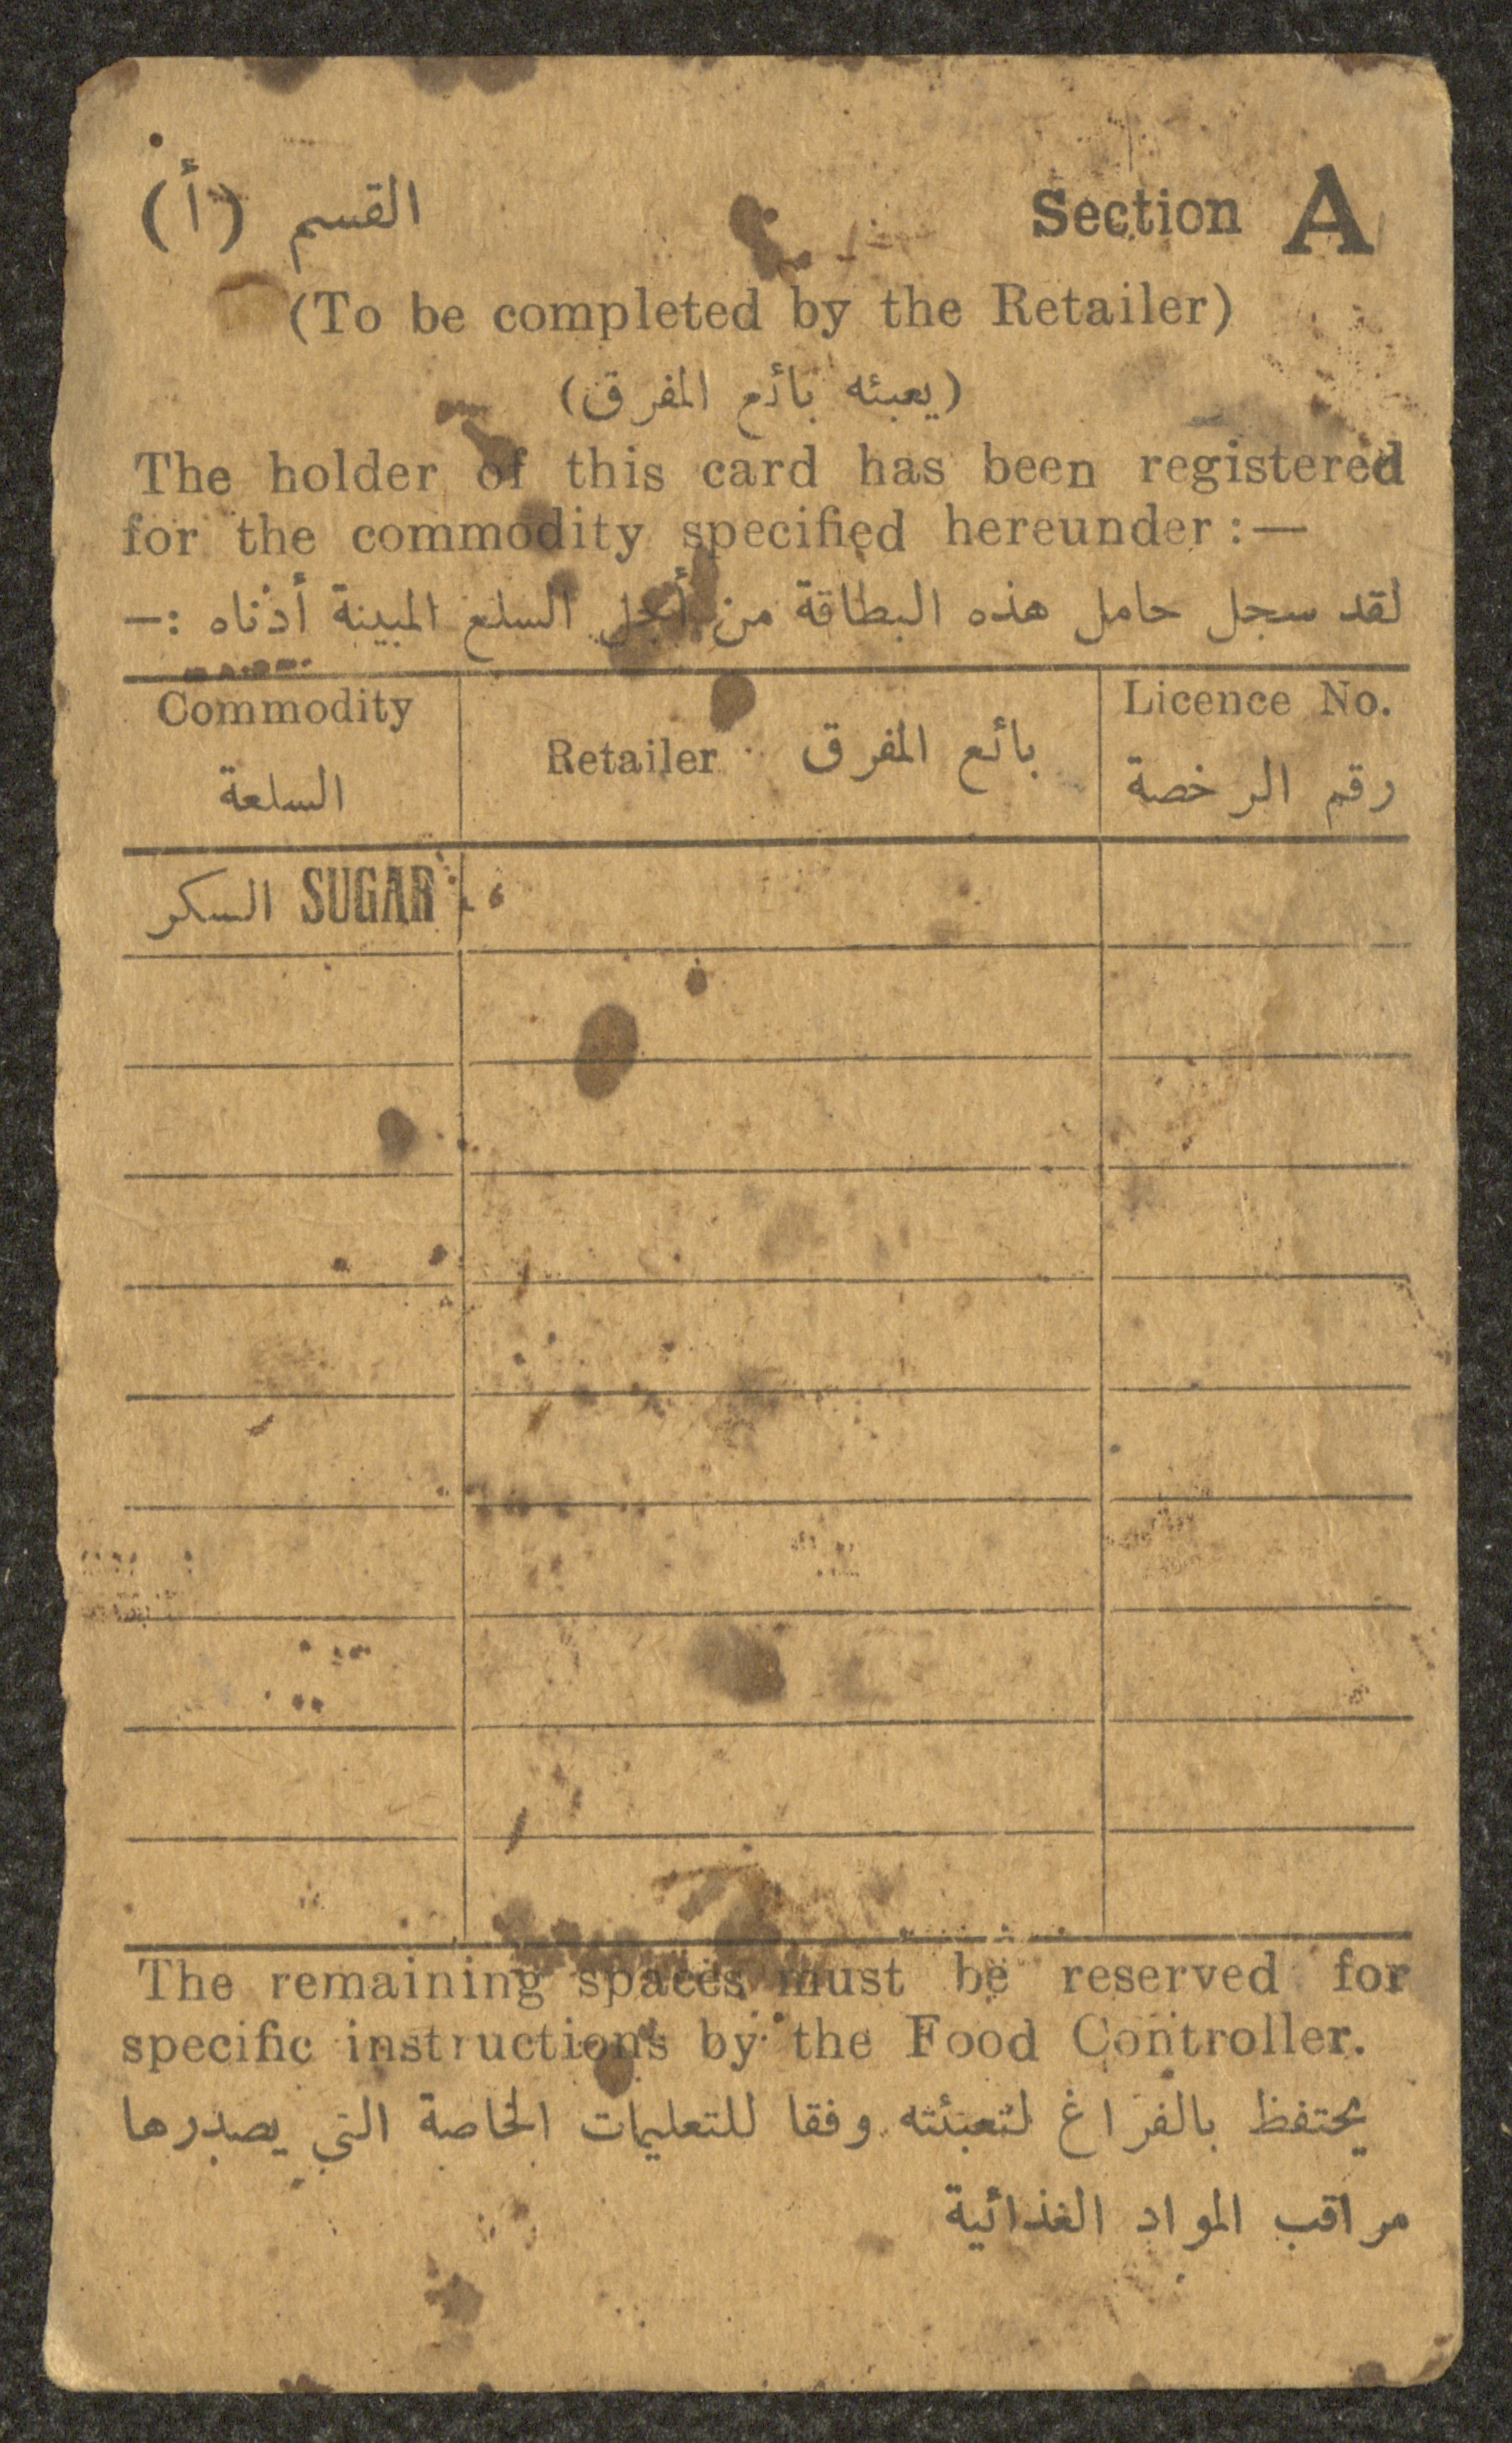 Section A القسم (أ)
(To be completed by the Retailer)
(يعبئه بائع المفرق)
The holder of this card has been registered
for the commodity specified hereunder:—
لقد سجل حامل هذه البطاقة من أجل السلع المبينة أدناه :—
Commodity Retailer بائع المفرق Licence No.
السلعة رقم الرخصة
السكر SUGAR
The remaining spaces must be reserved for
specific instructions by the Food Controller.
يحتفظ بالفراغ لتعبئته وفقا للتعليمات الخاصة التي يصدرها
مراقب المواد الغذائية